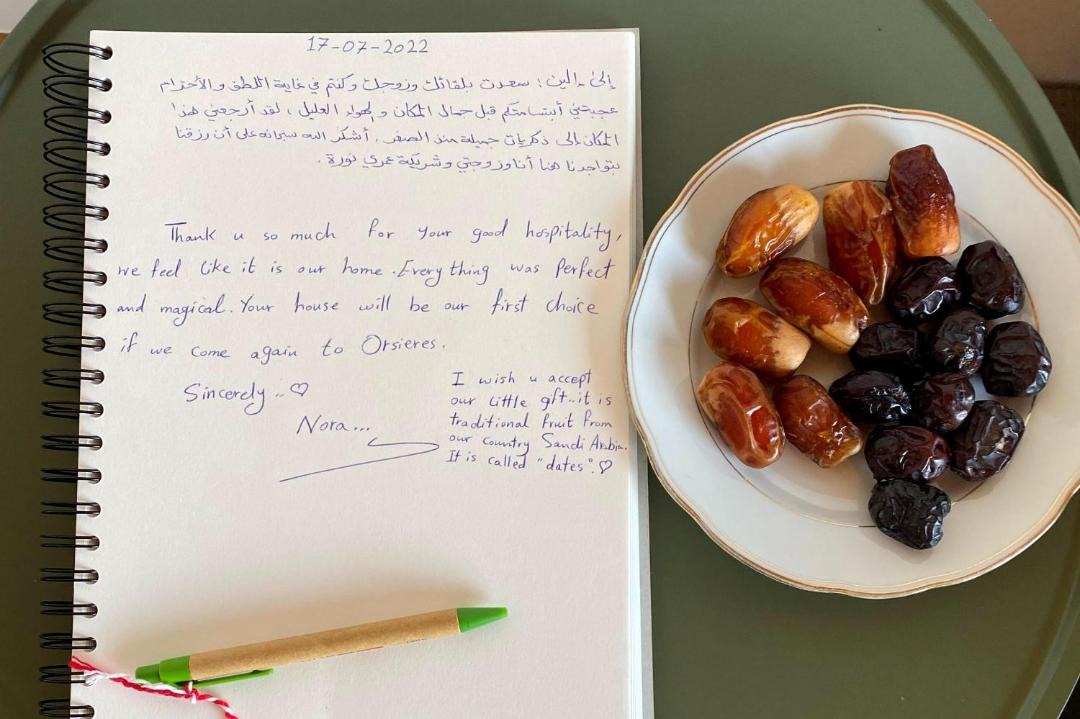 17-07-2022
إلى إلين : سعدت بلقائك وزوجك وكنتم في غاية اللطف والأحترام
عجبتني أبتسامتكم قبل جمال المكان والهواء العليل ، لقد أرجعني هذا
المكان إلى ذكريات جميلة منذ الصغر . أشكر الله سبحانه على أن رزقنا
بتواجدنا هنا أنا وزوجتي وشريكة عمري نورة .
Thank u so much for your good hospitality,
we feel like it is our home. Every thing was Perfect
and magical. Your house will be our first choice
if we come again to Orsieres.
Sincerely ..♡
Nora...
I wish u accept
our little gft..it is
traditional fruit from
our country Saudi Arabia.
It is called "dates".♡